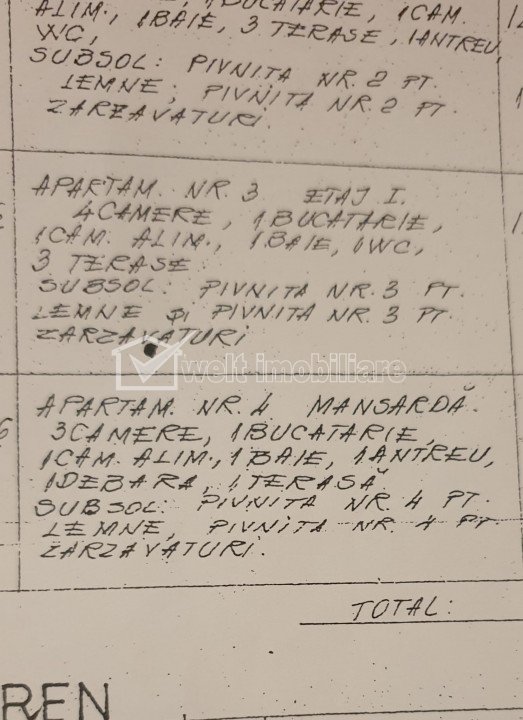 BUCATARIE, 1CAM.
ALIM., 1BAIE, 3 TERASE, 1ANTREU,
WC,
SUBSOL: PIVNITA NR. 2 PT.
LEMNE; PIVNITA NR. 2 PT.
ZARZAVATURI.
APARTAM. NR. 3 ETAJ I.
4CAMERE, 1BUCATARIE,
1CAM. ALIM., 1BAIE, 1WC,
3 TERASE.
SUBSOL: PIVNITA NR. 3 PT.
LEMNE și PIVNITA NR. 3 PT.
ZARZAVATURI
welt imobiliare
APARTAM. NR. 4 MANSARDĂ.
3CAMERE, 1BUCATARIE,
1CAM. ALIM., 1BAIE, 1ANTREU,
1DEBARA, 1TERASĂ
SUBSOL: PIVNITA NR. 4 PT.
LEMNE, PIVNITA NR. 4 PT.
ZARZAVATURI.
TOTAL:
REN